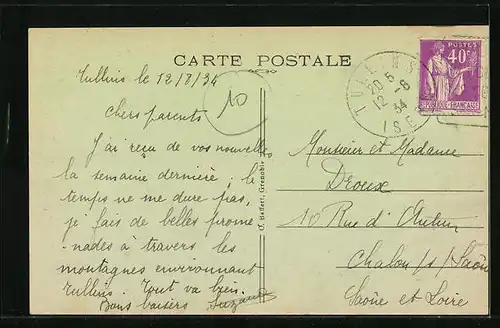 CARTE POSTALE
Tullins le 12/8/34
10
Chers parents
J'ai reçu de vos nouvelles
la semaine dernière ; le
temps ne me dure pas,
je fais de belles prome
-nades à travers les
montagnes environnant
Tullins. Tout va bien.
Bons baisers Suzanne
C. Baffert, Grenoble
TULLINS
20 5
12 -8
34
ISE
POSTES
40c
REPUBLIQUE FRANCAISE
Monsieur et Madame
Droux
10 Rue d'Autun
Chalon s/ Saône
Saône et Loire